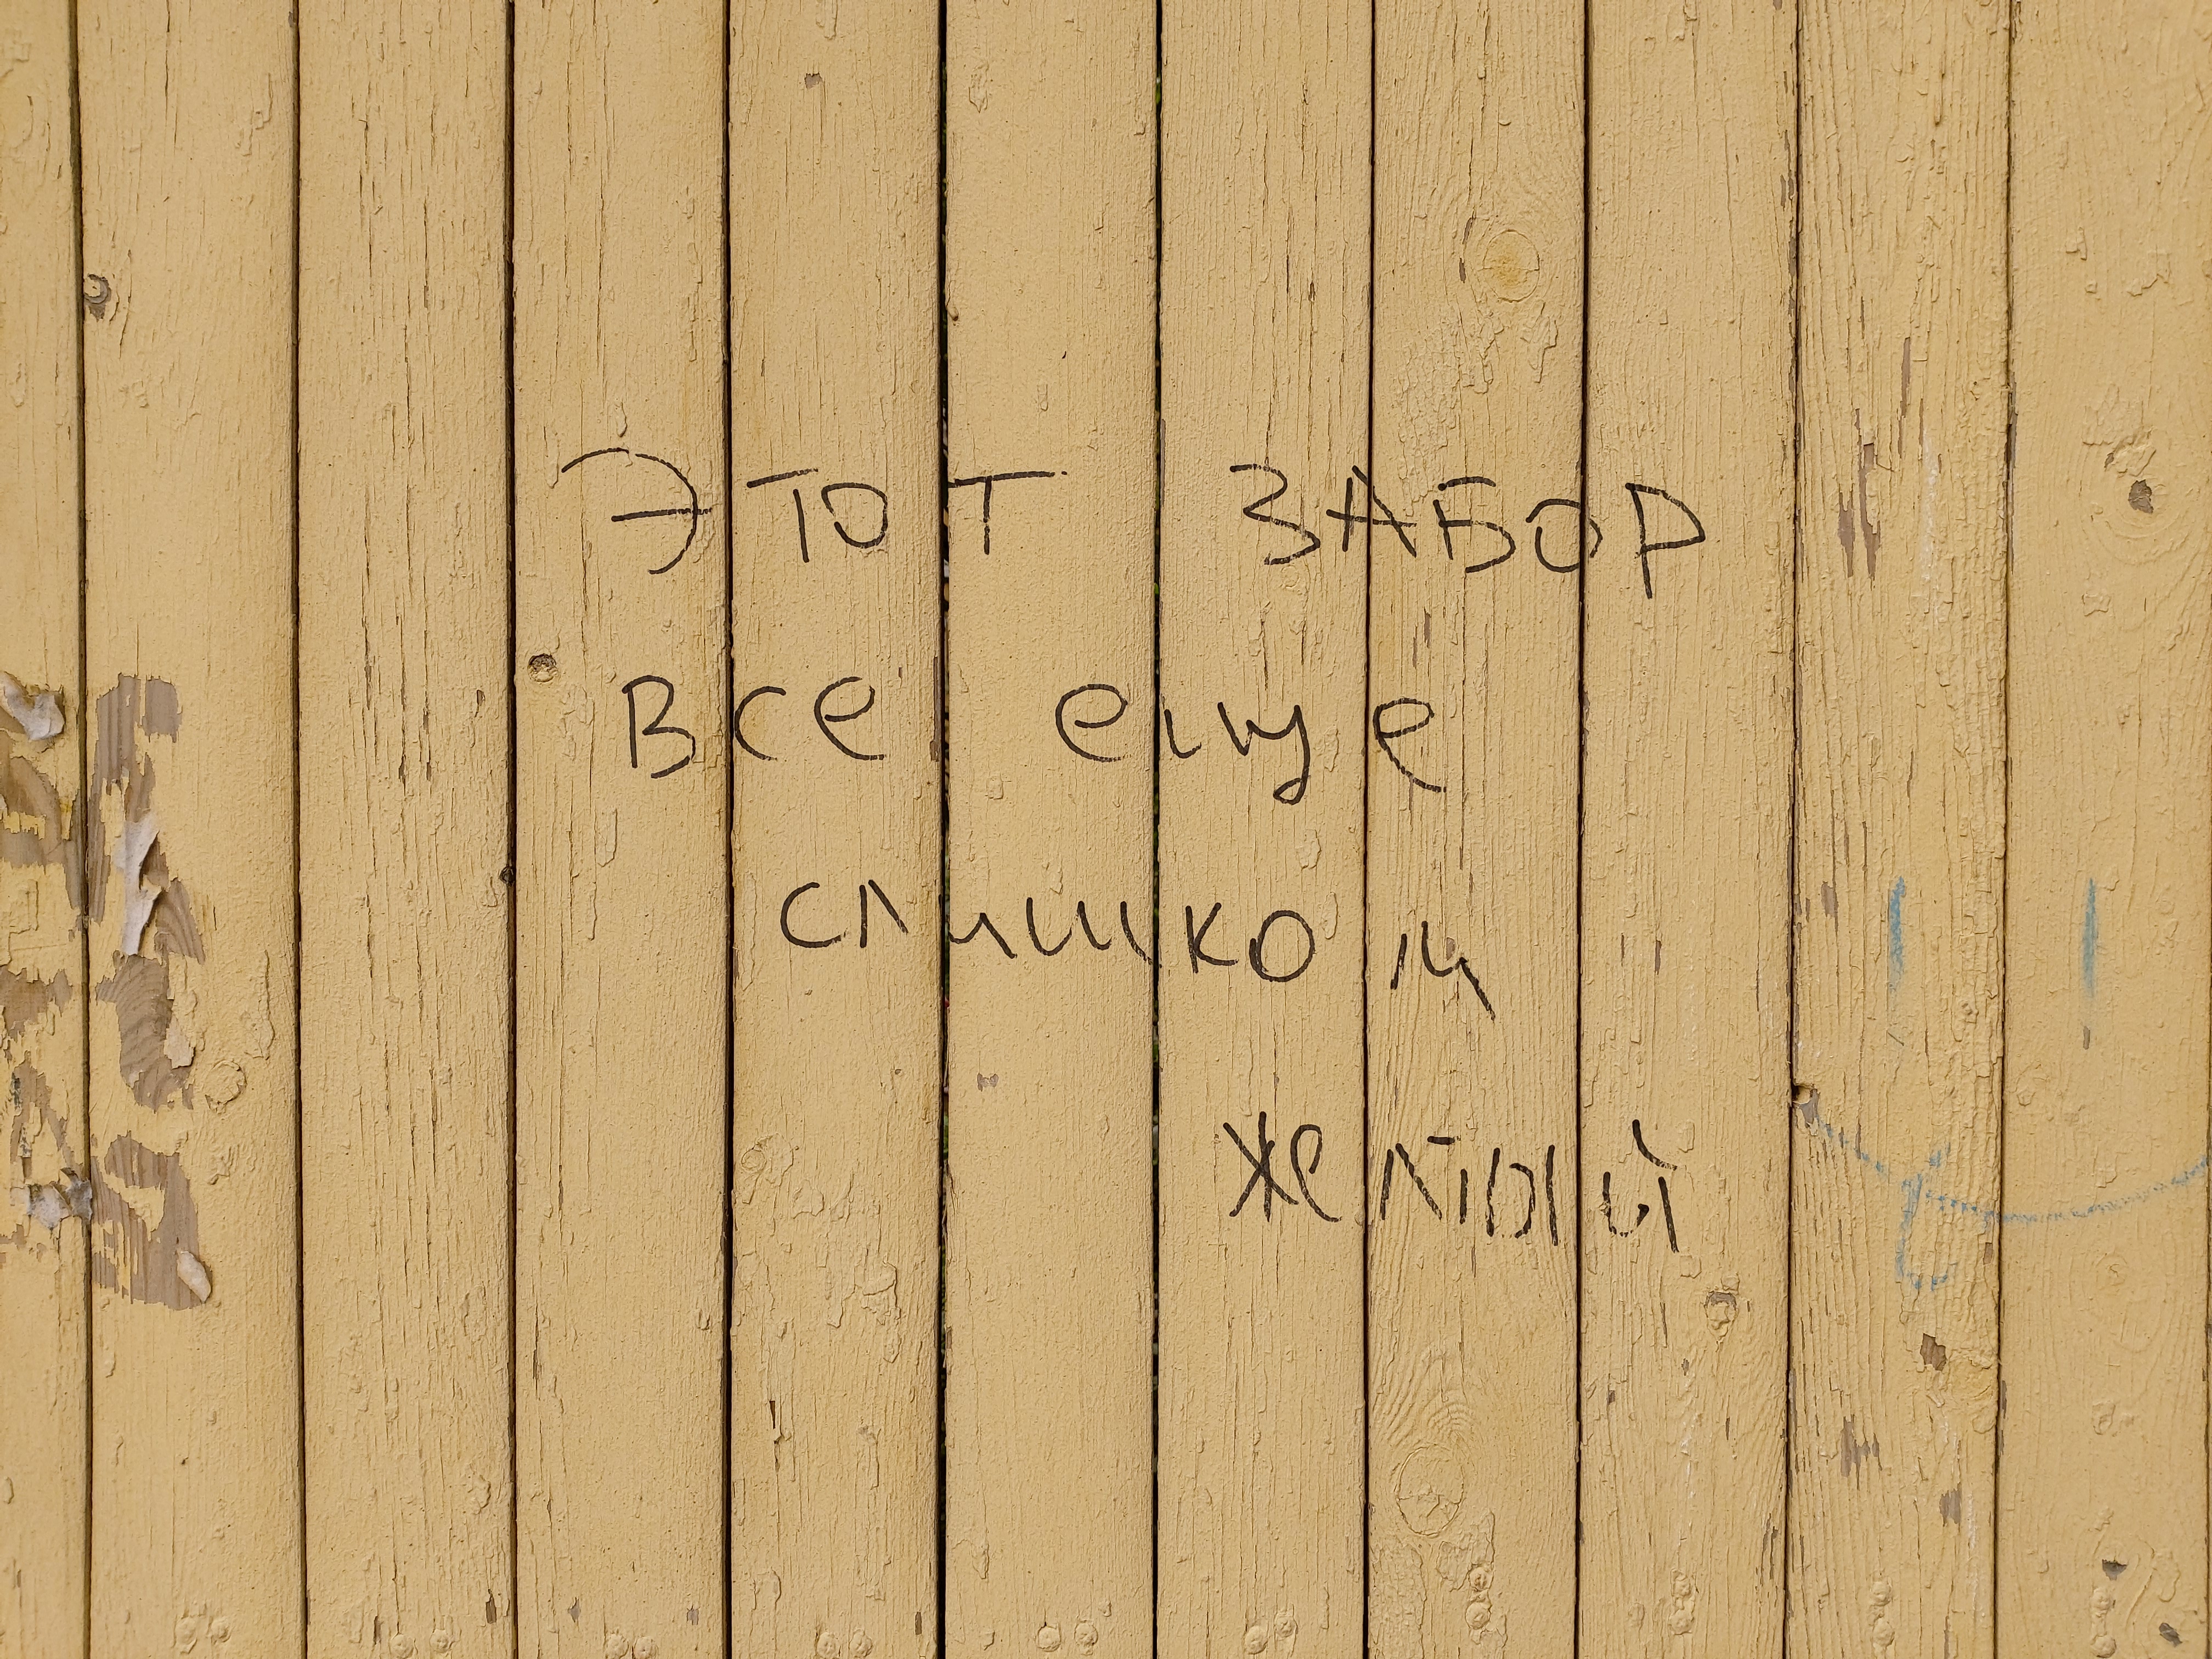 ЭТОТ ЗАБОР
все еще
слишком
желтый